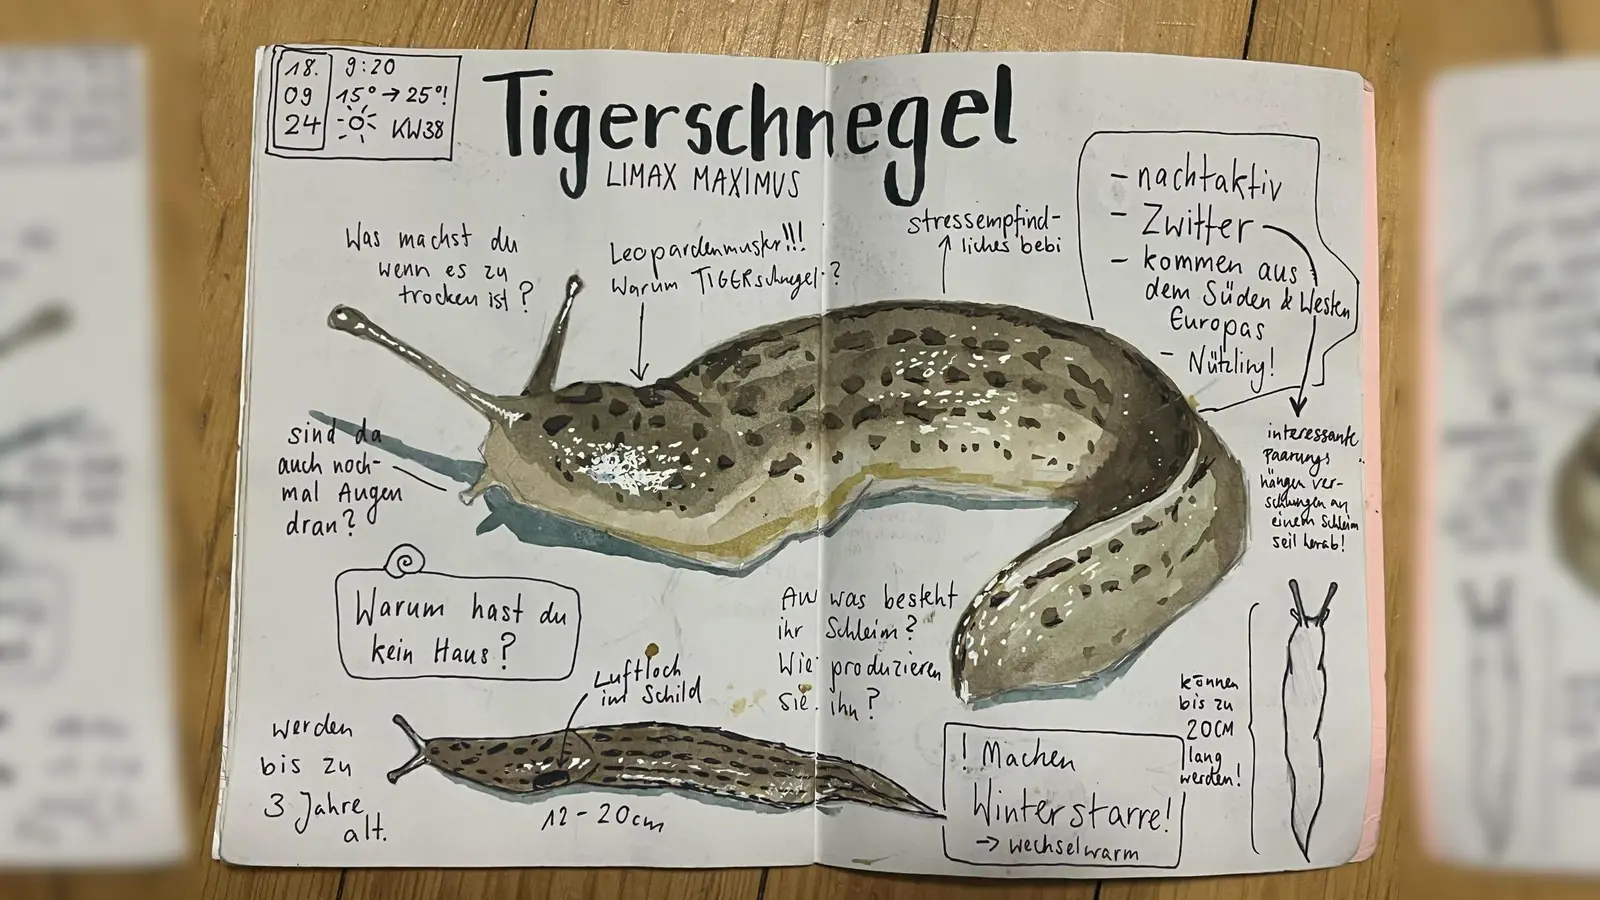 18.
09
24
9:20
15° → 25°!
KW38
Tigerschnegel
LIMAX MAXIMUS
Was machst du
wenn es zu
trocken ist?
Leopardenmuster!!!
Warum TIGERschnegel?
stressempfind-
liches bebi
- nachtaktiv
- Zwitter
- kommen aus
dem Süden & Westen
Europas
- Nützling!
interessante
Paarung
hängen ver-
schlungen an
einem Schleim
seil herab!
sind da
auch noch-
mal Augen
dran?
Warum hast du
kein Haus?
Aus was besteht
ihr Schleim?
Wie produzieren
sie ihn?
Luftloch
im Schild
werden
bis zu
3 Jahre
alt.
12-20cm
! Machen
Winterstarre!
→ wechselwarm
können
bis zu
20CM
lang
werden!